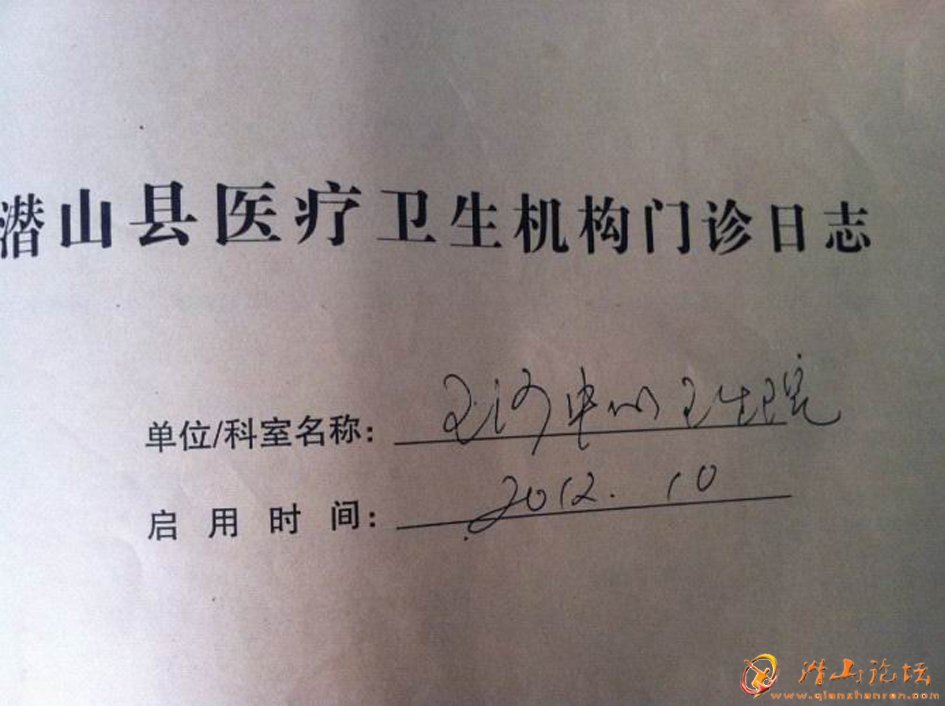 潜山县医疗卫生机构门诊日志
单位/科室名称：王河中心卫生院
启用时间：2012.10
潜山论坛
www.qianshanren.com